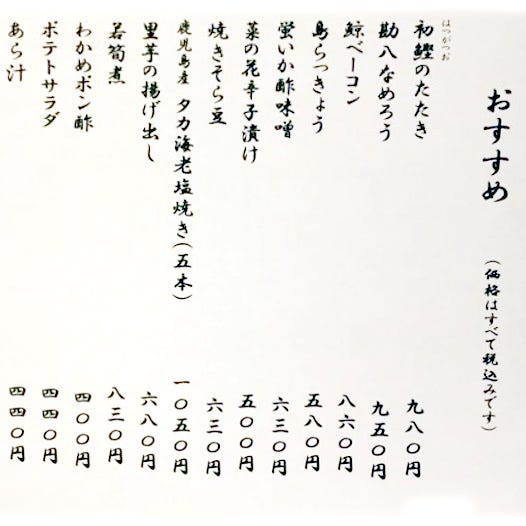 おすすめ (価格はすべて税込みです)
はつがつお
初鰹のたたき 九八〇円
勘八なめろう 九五〇円
鯨ベーコン 八六〇円
島らっきょう 五八〇円
蛍いか酢味噌 六三〇円
菜の花辛子漬け 五〇〇円
焼きそら豆 六三〇円
鹿児島産 タカ海老塩焼き(五本) 一〇五〇円
里芋の揚げ出し 六八〇円
若筍煮 八三〇円
わかめポン酢 四〇〇円
ポテトサラダ 四四〇円
あら汁 四四〇円